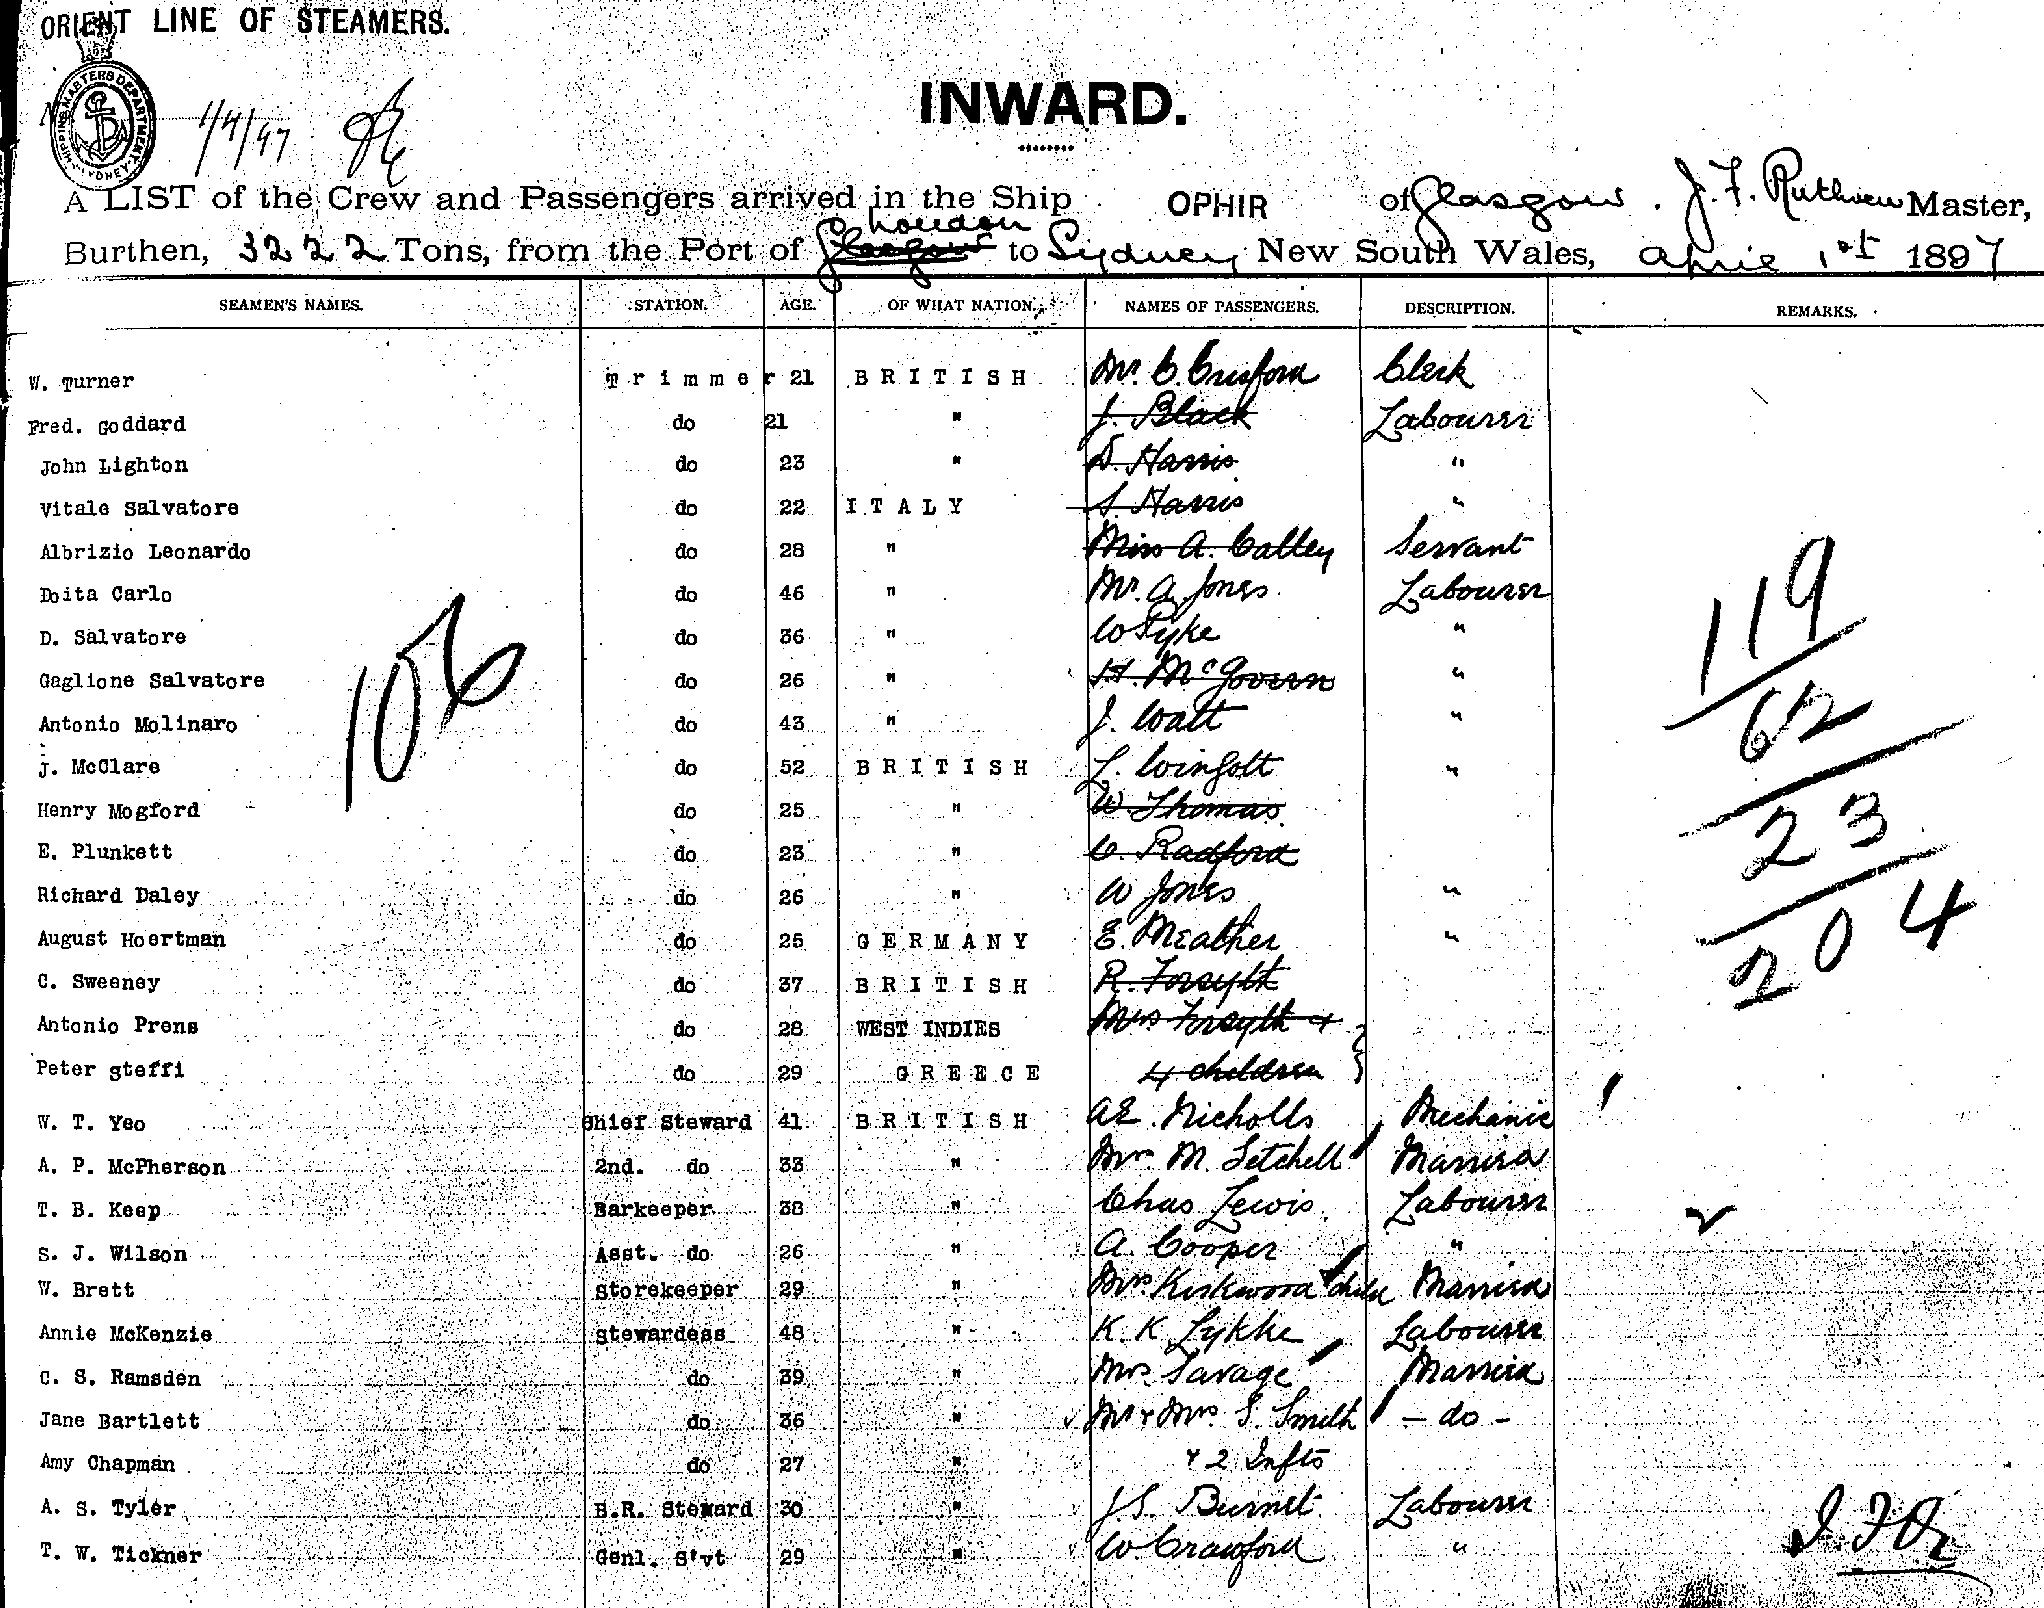 ORIENT LINE OF STEAMERS.
SHIPPING MASTERS DEPARTMENT SYDNEY
1/4/97
INWARD.
A LIST of the Crew and Passengers arrived in the Ship OPHIR of Glasgow. J. F. Ruthven Master,
London
Burthen, 3222 Tons, from the Port of Glasgow to Sydney New South Wales, April 1st 1897
SEAMEN'S NAMES. STATION. AGE. OF WHAT NATION. NAMES OF PASSENGERS. DESCRIPTION. REMARKS.
W. Turner Trimmer 21 BRITISH Mr. C. Crisford Clerk
Fred. Goddard do 21 " J. Black Labourer
John Lighton do 23 " D. Harris "
Vitale Salvatore do 22 ITALY S. Harris "
Albrizio Leonardo do 28 " Miss A. Calley Servant
Doita Carlo do 46 " Mr. A. Jones Labourer
D. Salvatore do 36 " W Pyke "
Gaglione Salvatore do 26 " H. McGovern "
Antonio Molinaro do 43 " J. Watt "
J. McClare do 52 BRITISH L. Wingott "
Henry Mogford do 25 " W Thomas
E. Plunkett do 23 " C. Radford
Richard Daley do 26 " W Jones "
August Hoertman do 25 GERMANY E. Meather "
C. Sweeney do 37 BRITISH R. Forsyth
Antonio Prens do 28 WEST INDIES Mrs Forsyth &
Peter steffi do 29 GREECE 4 children
W. T. Yeo Chief Steward 41 BRITISH A E. Nicholls Mechanic
A. P. McPherson 2nd. do 33 " Mrs M. Setchell Married
T. B. Keep Barkeeper 38 " Chas Lewis. Labourer
S. J. Wilson Asst. do 26 " A. Cooper "
W. Brett Storekeeper 29 " Mrs Kirkwood child Married
Annie McKenzie stewardess 48 " K. K Lykke Labourer
C. S. Ramsden do 39 " Mrs. Savage Married
Jane Bartlett do 36 " Mr & Mrs. S. Smith - do -
Amy Chapman do 27 " & 2 Infts
A. S. Tyler B.R. Steward 30 " J S. Burnet Labourer
T. W. Tickner Genl. S'vt 29 " W. Crawford "
106
119
62
23
204